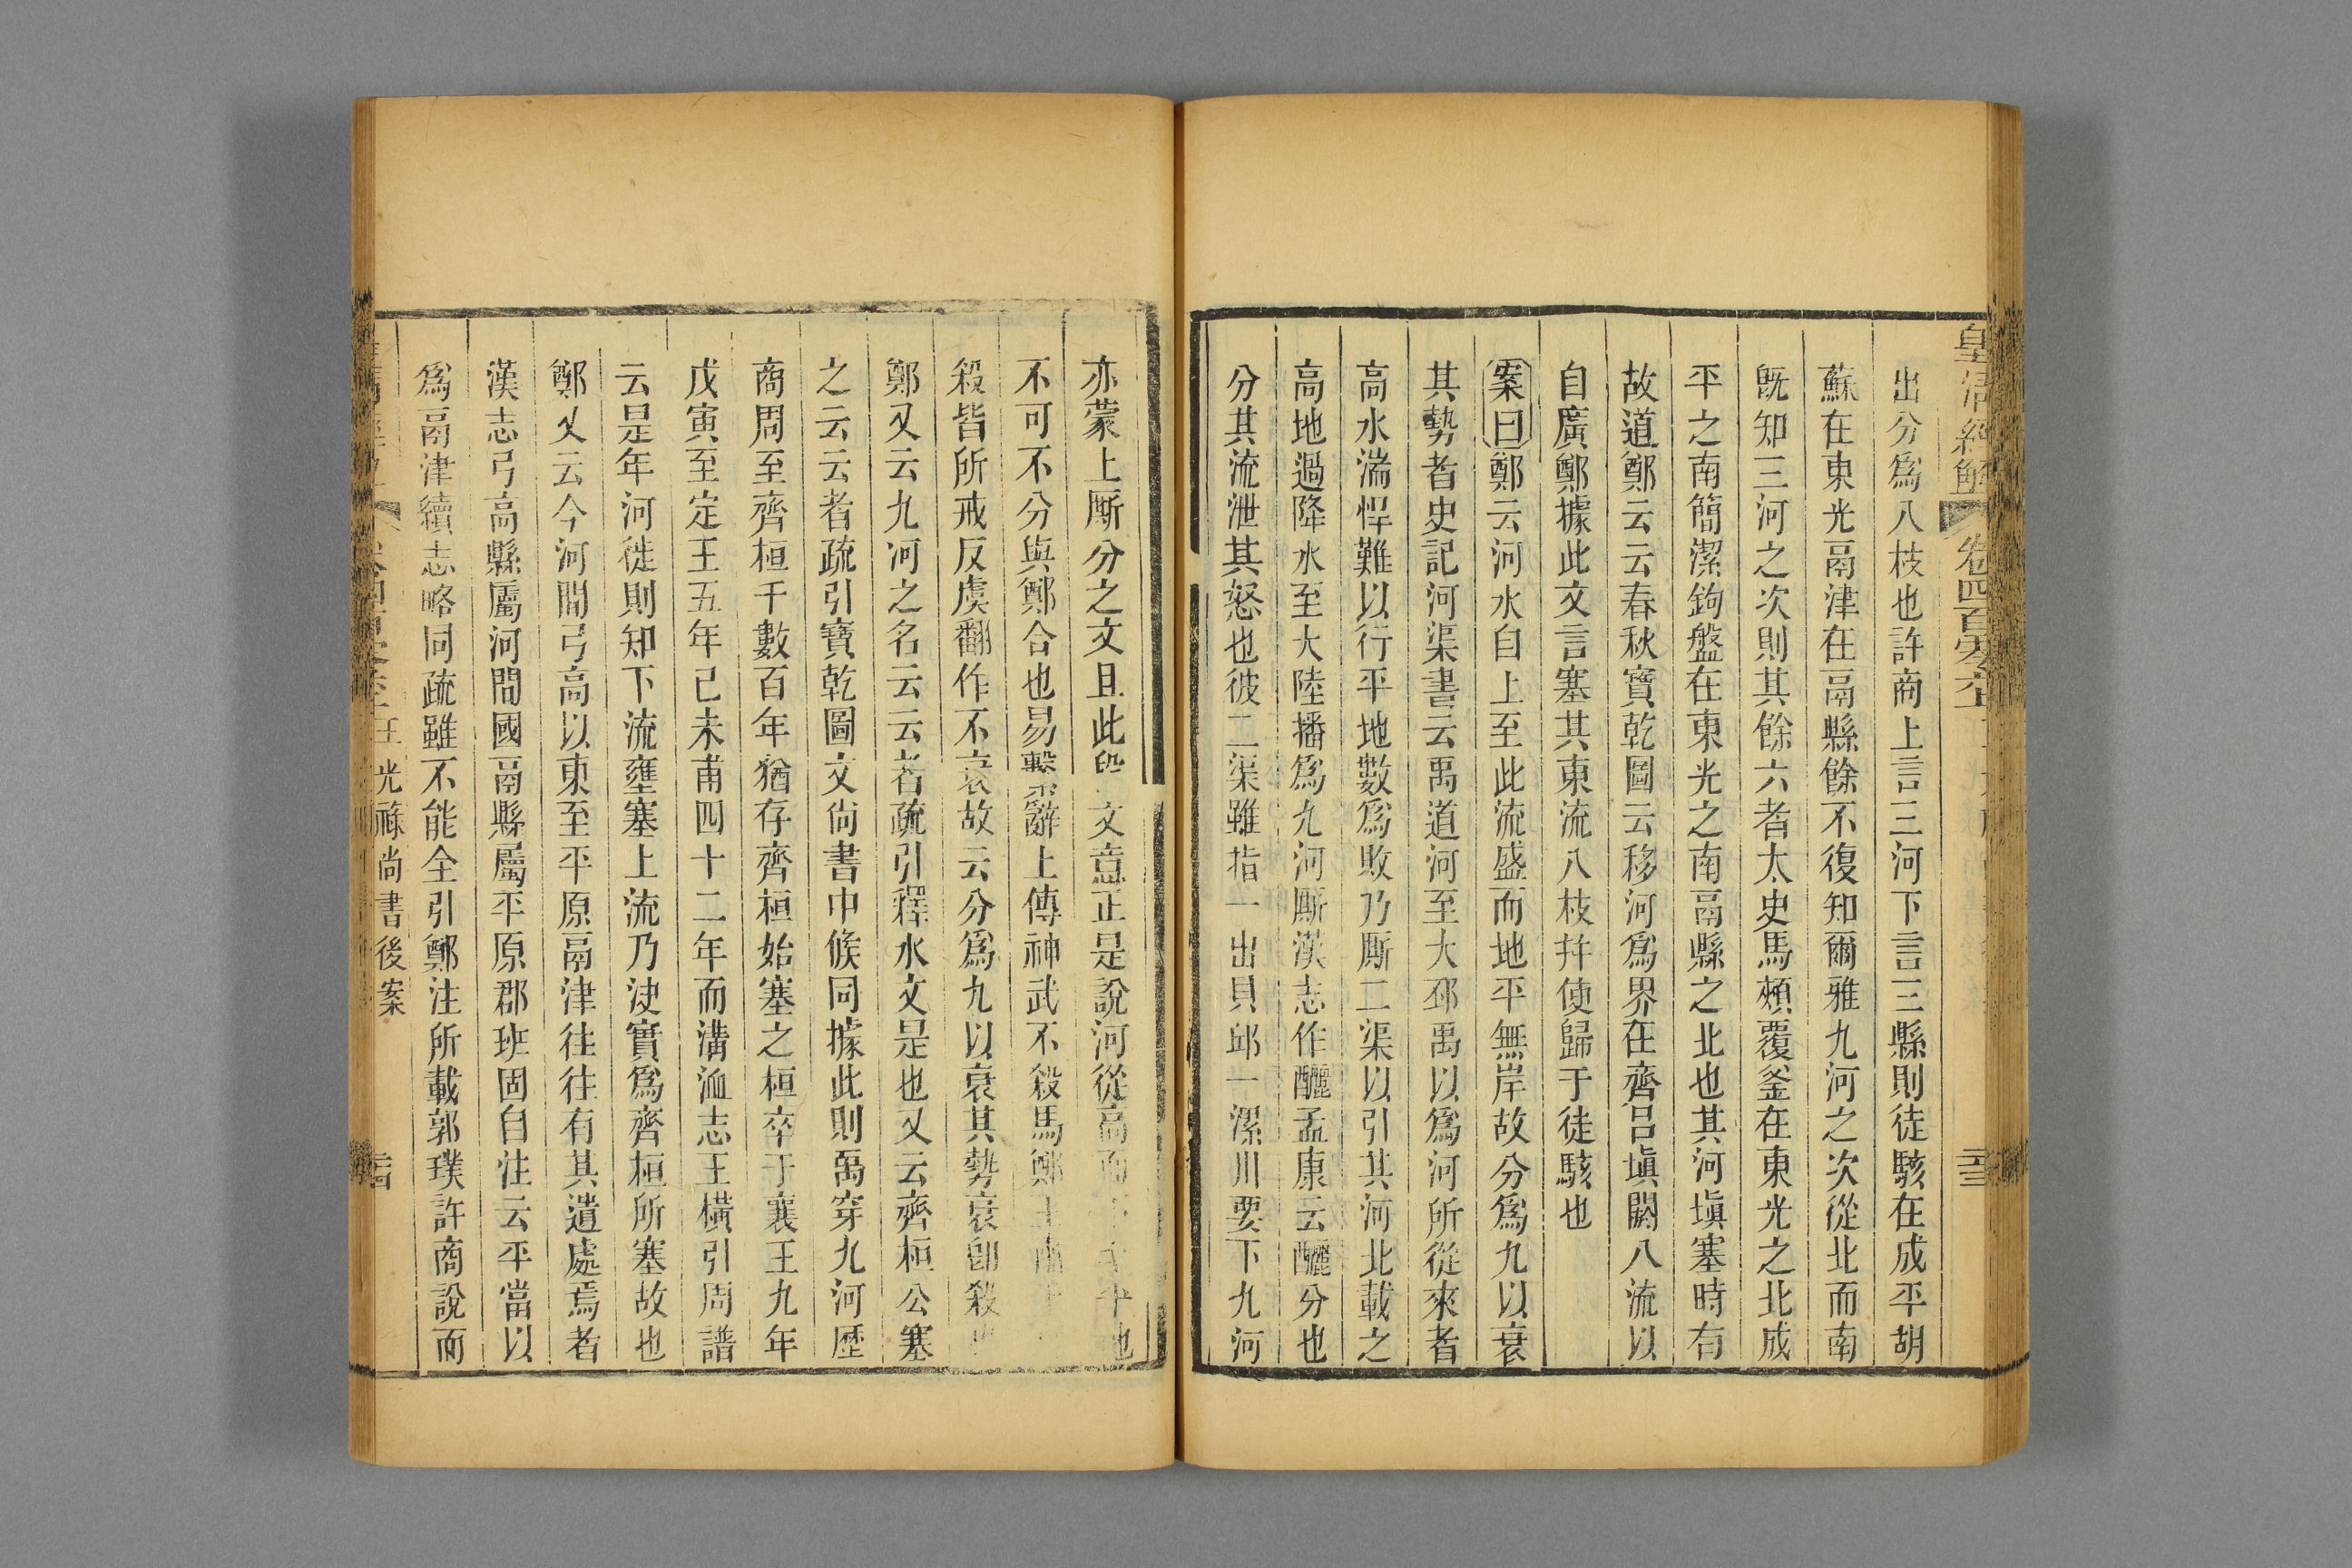 皇清經解
卷四百零六
出分爲八枝也許商上言三河下言三縣則徒駭在成平胡
蘇在東光鬲津在鬲縣餘不復知爾雅九河之次從北而南
旣知三河之次則其餘六者太史馬頰覆釜在東光之北成
平之南簡潔鉤盤在東光之南鬲縣之北也其河塡塞時有
故道鄭云云春秋寶乾圖云移河爲界在齊呂塡閼八流以
自廣鄭據此文言塞其東流八枝幷使歸于徒駭也
案曰鄭云河水自上至此流盛而地平無岸故分爲九以衰
其勢者史記河渠書云禹道河至大邳禹以爲河所從來者
高水湍悍難以行平地數爲敗乃厮二渠以引其河北載之
高地過降水至大陸播爲九河厮漢志作釃孟康云釃分也
分其流泄其怒也彼二渠雖指一出貝邱一漯川要下九河
亦蒙上厮分之文且此文意正是說河從高而平地
不可不分與鄭合也易繫辭上傳神武不殺馬鄭王肅
殺皆所戒反虞翻作不衰故云分爲九以衰其勢衰卽殺
鄭又云九河之名云云者疏引釋水文是也又云齊桓公塞
之云云者疏引寶乾圖文尙書中候同據此則禹穿九河歷
商周至齊桓千數百年猶存齊桓始塞之桓卒于襄王九年
戊寅至定王五年己未甫四十二年而溝洫志王橫引周譜
云是年河徙則知下流壅塞上流乃決實爲齊桓所塞故也
鄭又云今河閒弓高以東至平原鬲津往往有其遺處焉者
漢志弓高縣屬河閒國鬲縣屬平原郡班固自注云平當以
爲鬲津續志略同疏雖不能全引鄭注所載郭璞許商說而
王光祿尚書後案